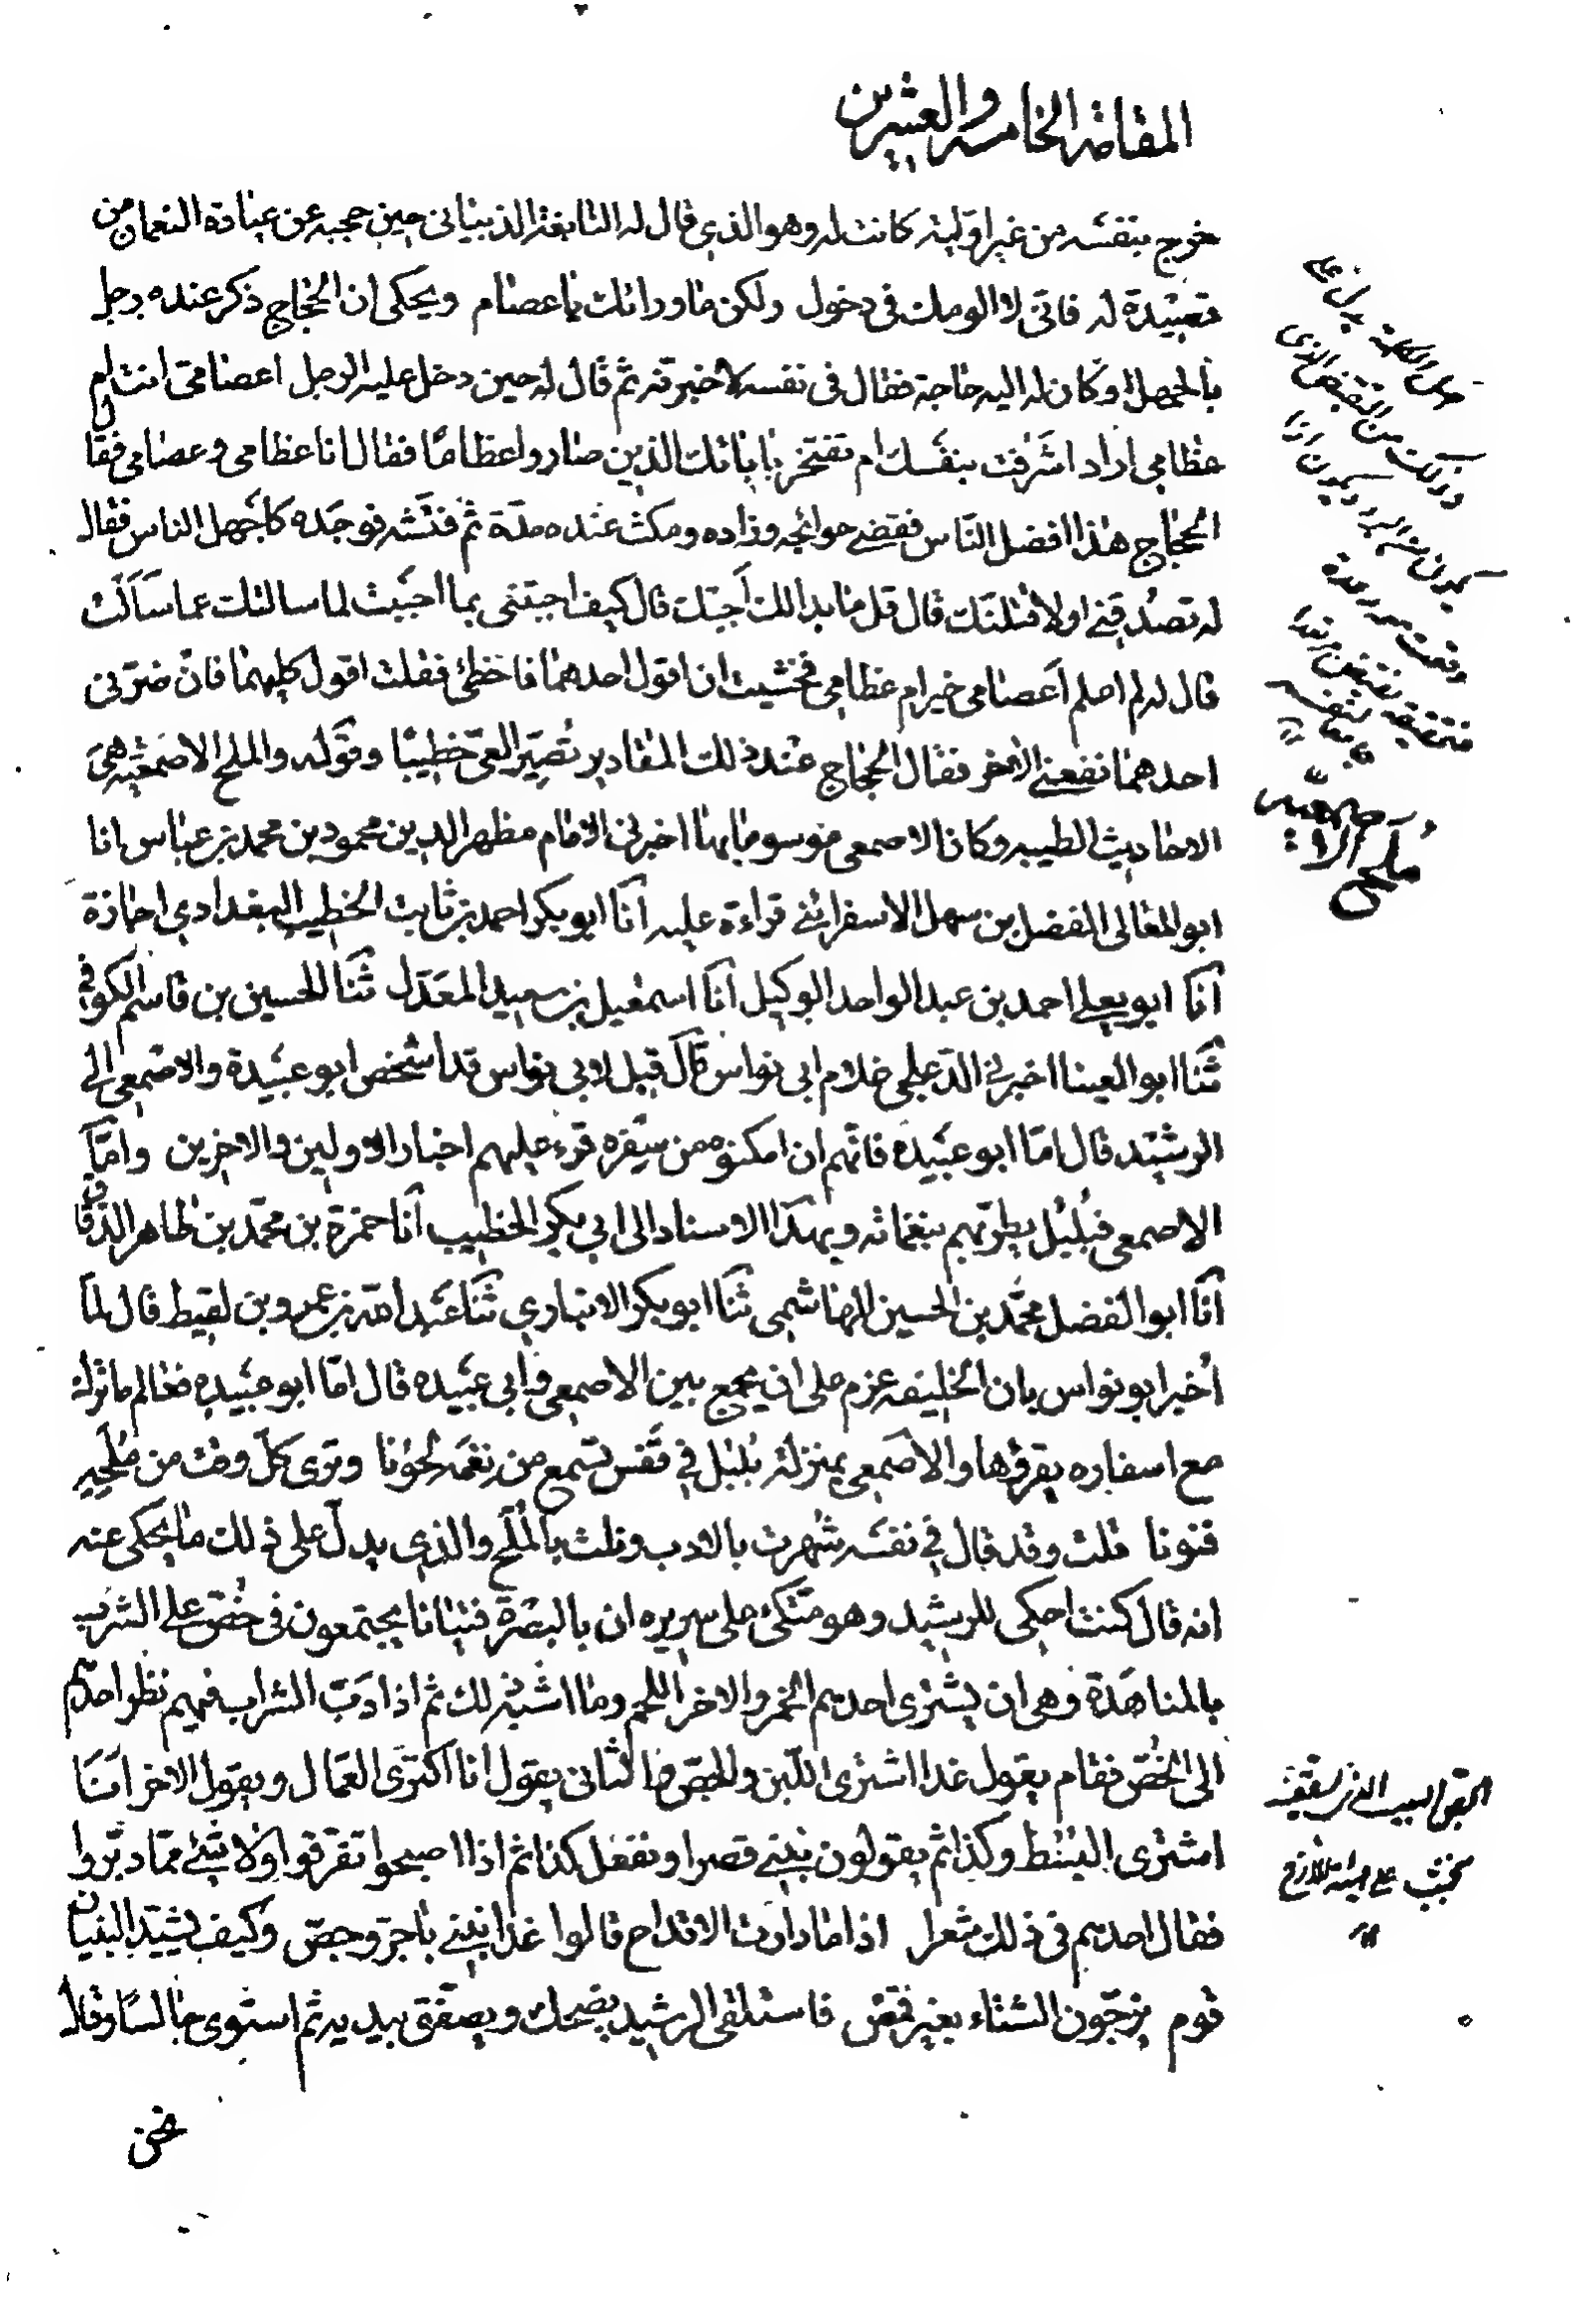 المقامة الخامسة والعشرين
خرج بنفسه من غير اولية كانت له وهو الذي قال له النابغة الذبياني حين حجبه عن عيادة النعمان من
قصيدة له فاني لا الومك في دخول ولكن ما ورائك يا عصام ويحكى ان الحجاج ذكر عنده رجل
بالجهل وكان له اليه حاجة فقال في نفسه لاخبرنه ثم قال له حين دخل عليه الرجل اعصامي انت ام
عظامي اراد اشرفت بنفسك ام تفتخر بابائك الذين صاروا عظاما فقال انا عظامي وعصامي فقال
الحجاج هذا افضل الناس فقضى حوائجه وزاده ومكث عنده مدة ثم فتشه فوجده كاجهل الناس فقال
له تصدقني او لاقتلنك قال قل ما بدالك اجبك قال كيف اجبتني بما اجبت لما سالتك عما سألت
قال له لم اعلم اعصامي خير ام عظامي فخشيت ان اقول احدهما فاخطئ فقلت اقول كليهما فان ضرني
احدهما نفعني الاخر فقال الحجاج عند ذلك المقادير تصير العي خطيبا وقوله والملح الاصمعية هي
الاحاديث الطيبه وكان الاصمعي موسوما بها اخبرني الامام مظهر الدين محمود بن محمد بن عباس انا
ابو المعالي الفضل بن سهل الاسفرائني قراءة عليه انا ابو بكر احمد بن ثابت الخطيب البغدادي اجازة
انا ابو يعلى احمد بن عبد الواحد الوكيل انا اسمعيل بن سعيد المعدل ثنا الحسين بن قاسم الكوفي
ثنا ابو العينا اخبرني الدعلجي غلام ابي نواس قال قيل لابي نواس قد اشخص ابو عبيدة والاصمعي الى
الرشيد قال اما ابو عبيده فانهم ان امكنوه من سفره قرء عليهم اخبار الاولين والاخرين واما
الاصمعي فبلبل يطربهم بنغماته وبهذا الاسناد الى ابي بكر الخطيب انا حمزة بن محمد بن طاهر الدقاق
انا ابو الفضل محمد بن الحسين الهاشمي ثنا ابو بكر الانباري ثنا عبد الله بن عمرو بن لقيط قال لما
اخبر ابو نواس بان الخليفه عزم على ان يجمع بين الاصمعي وابي عبيده قال اما ابو عبيده فعالم ما ترك
مع اسفاره يقرؤها والاصمعي بمنزلة بلبل في قفس تسمع من نغمه لحونا وترى كل وقت من ملحه
فنونا قلت وقد قال في نفسه شهرت بالادب ونلت بالملح والذي يدل على ذلك ما يحكى عنه
انه قال كنت احكي للرشيد وهو متكئ على سريره ان بالبصرة فتيانا يجتمعون في خص على الشرب
بالمناهدة وهي ان يشترى احدهم الخمر والاخر اللحم وما اشبه ذلك ثم اذا دب الشراب فيهم نظر احدهم
الى الخص فقام يقول غدا اشترى اللبن والجص والثاني يقول انا اكترى العمال ويقول الاخر انا
اشترى البسط وكذا ثم يقولون نبني قصرا ونفعل كذا ثم اذا اصبحوا تفرقوا ولا شئ مما دبروا
فقال احدهم في ذلك شعرا اذا ما دارت الاقداح قالوا غدا نبني باجر وجص وكيف يشيد البنيان
قوم يزجون الشتاء بغير قمص فاستلقى الرشيد يضحك ويصفق بيديه ثم استوى جالسا وقال
نحن
ملح الاصمعيه
الخص البيت الذي يسقف
بخشب على هيئة الازج